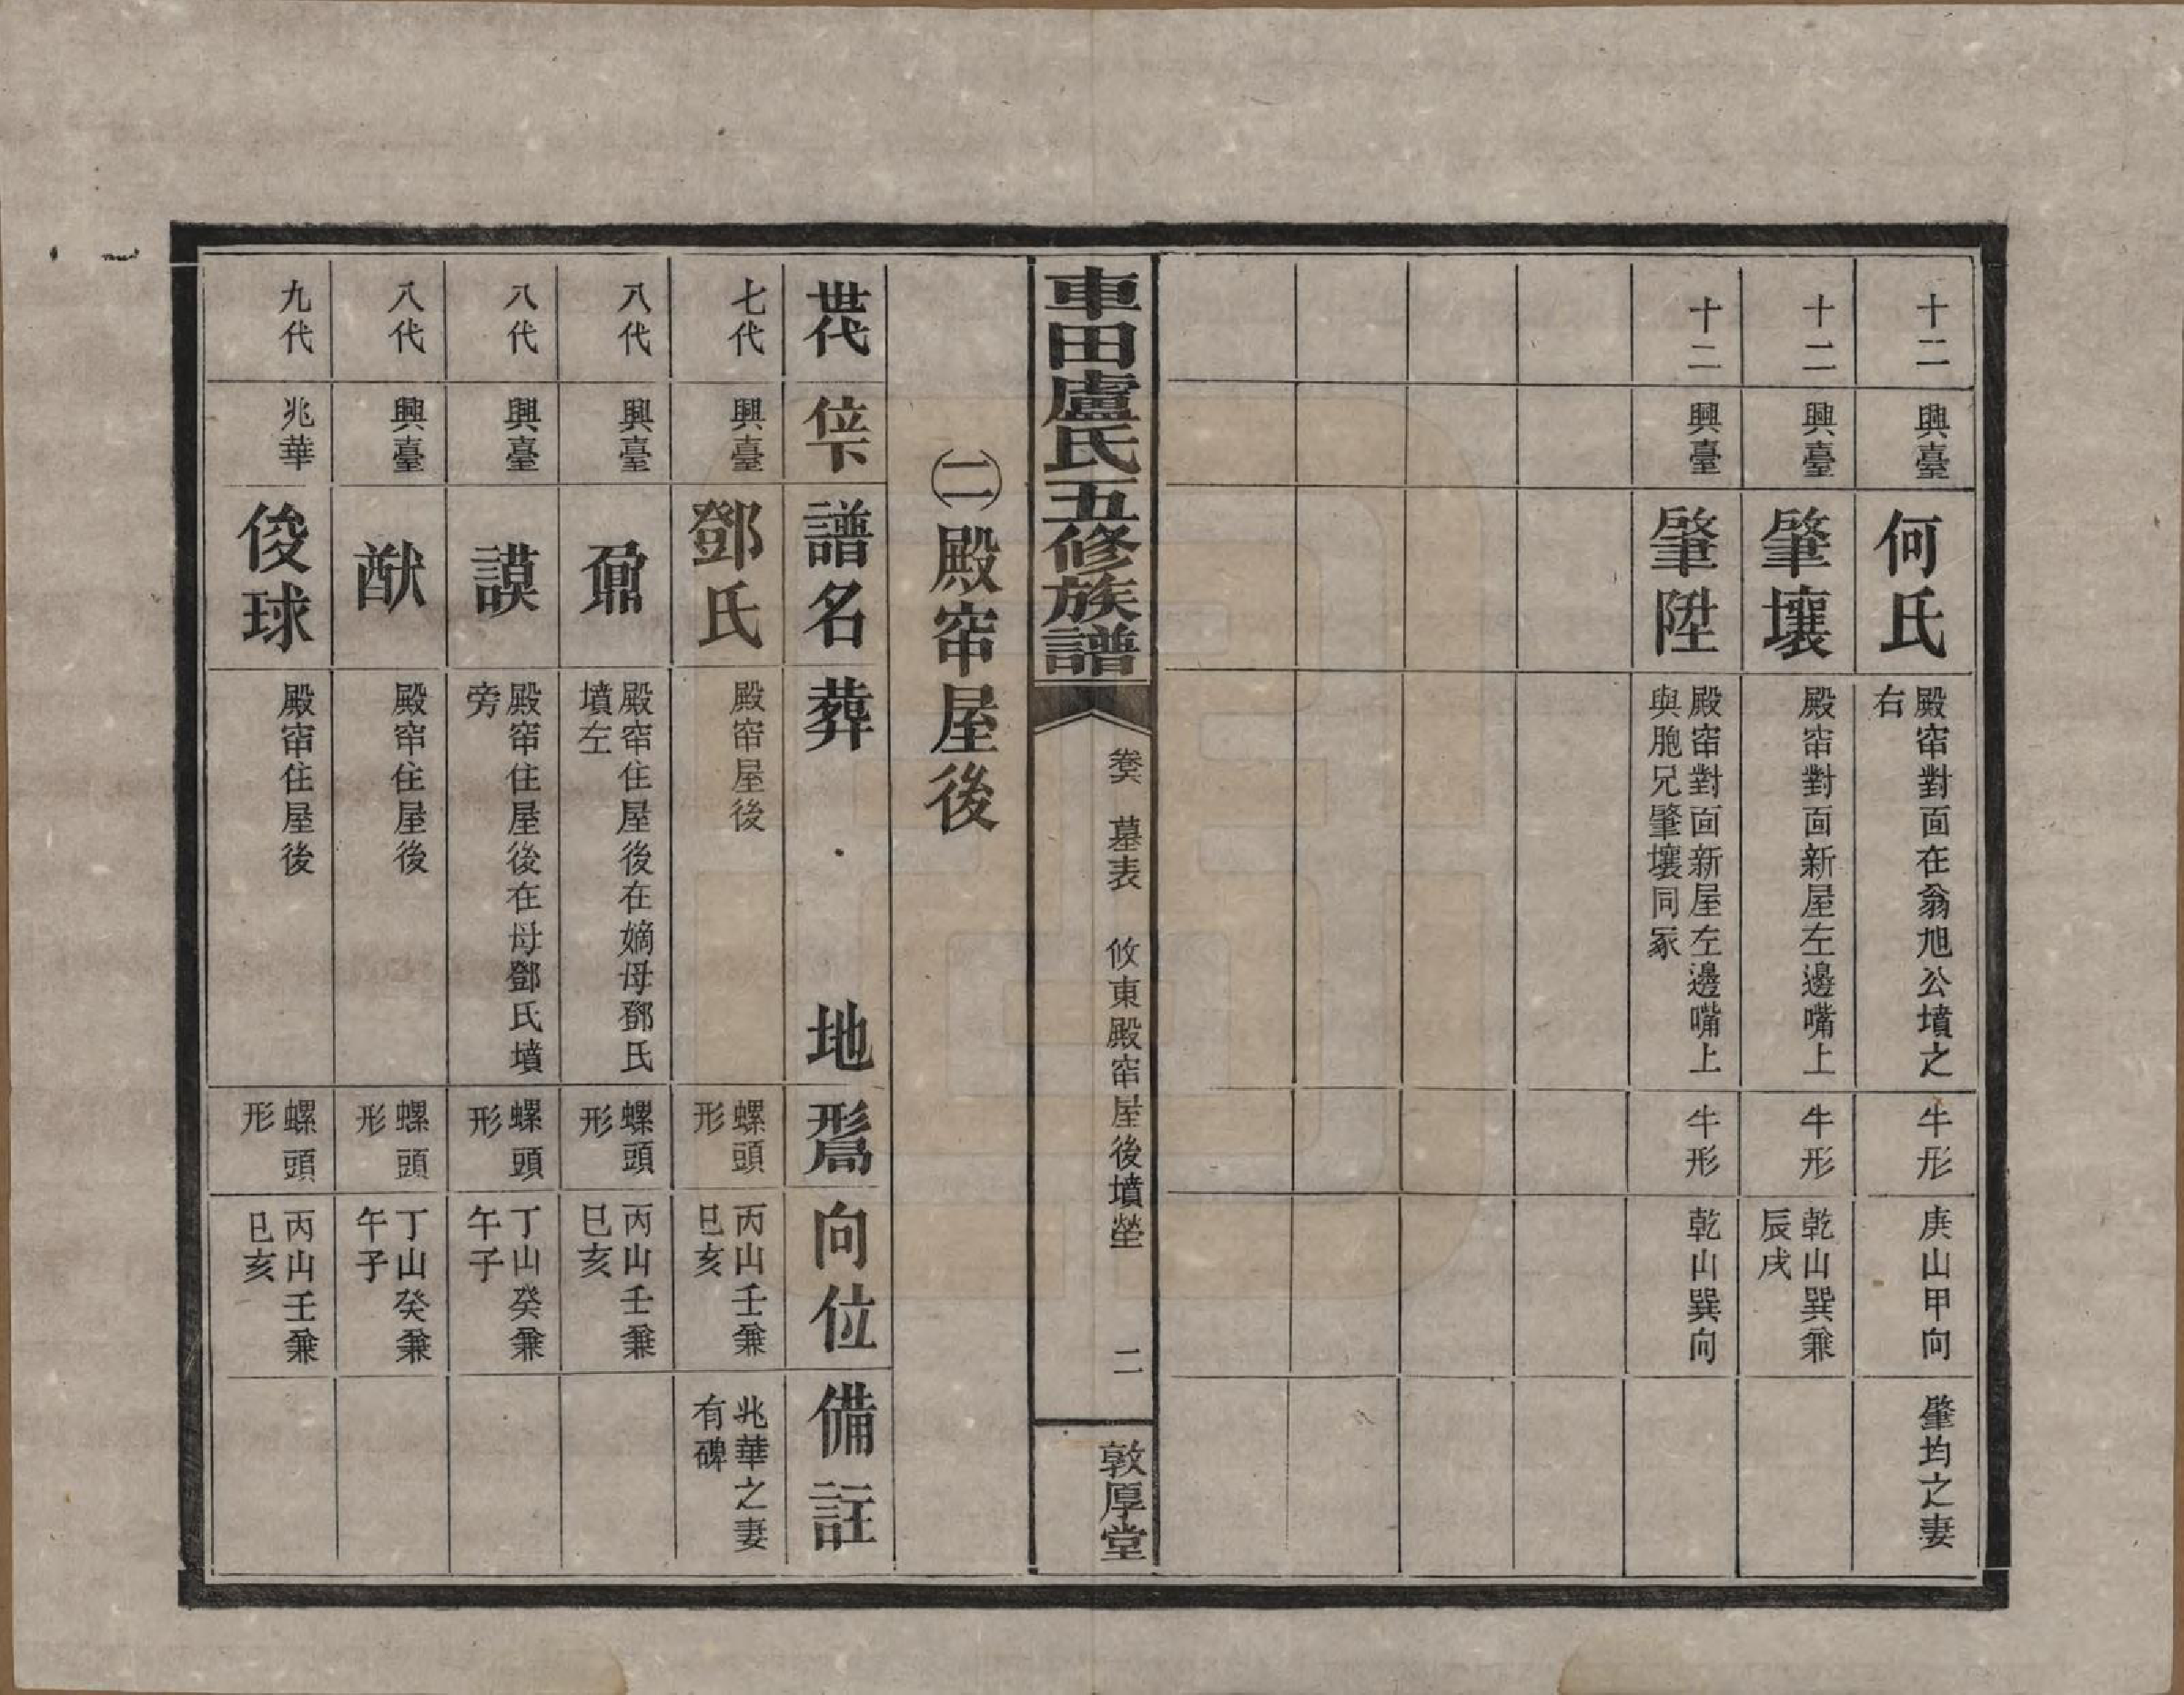 十二 興臺 何氏 殿窋對面在翁旭公墳之右 牛形 庚山甲向 肇均之妻
十二 興臺 肇壤 殿窋對面新屋左邊嘴上 牛形 乾山巽兼辰戌
十二 興臺 肇陞 殿窋對面新屋左邊嘴上與胞兄肇壤同冢 牛形 乾山巽向
車田盧氏五修族譜 卷六 墓表 攸東殿窋屋後墳塋 二 敦厚堂
㈡殿窋屋後
世代 位下 譜名 葬地 形局 向位 備註
七代 興臺 鄧氏 殿窋屋後 螺頭形 丙山壬兼巳亥 兆華之妻有碑
八代 興臺 鼐 殿窋住屋後在嫡母鄧氏墳左 螺頭形 丙山壬兼巳亥
八代 興臺 謨 殿窋住屋後在母鄧氏墳旁 螺頭形 丁山癸兼午子
八代 興臺 猷 殿窋住屋後 螺頭形 丁山癸兼午子
九代 兆華 俊球 殿窋住屋後 螺頭形 丙山壬兼巳亥